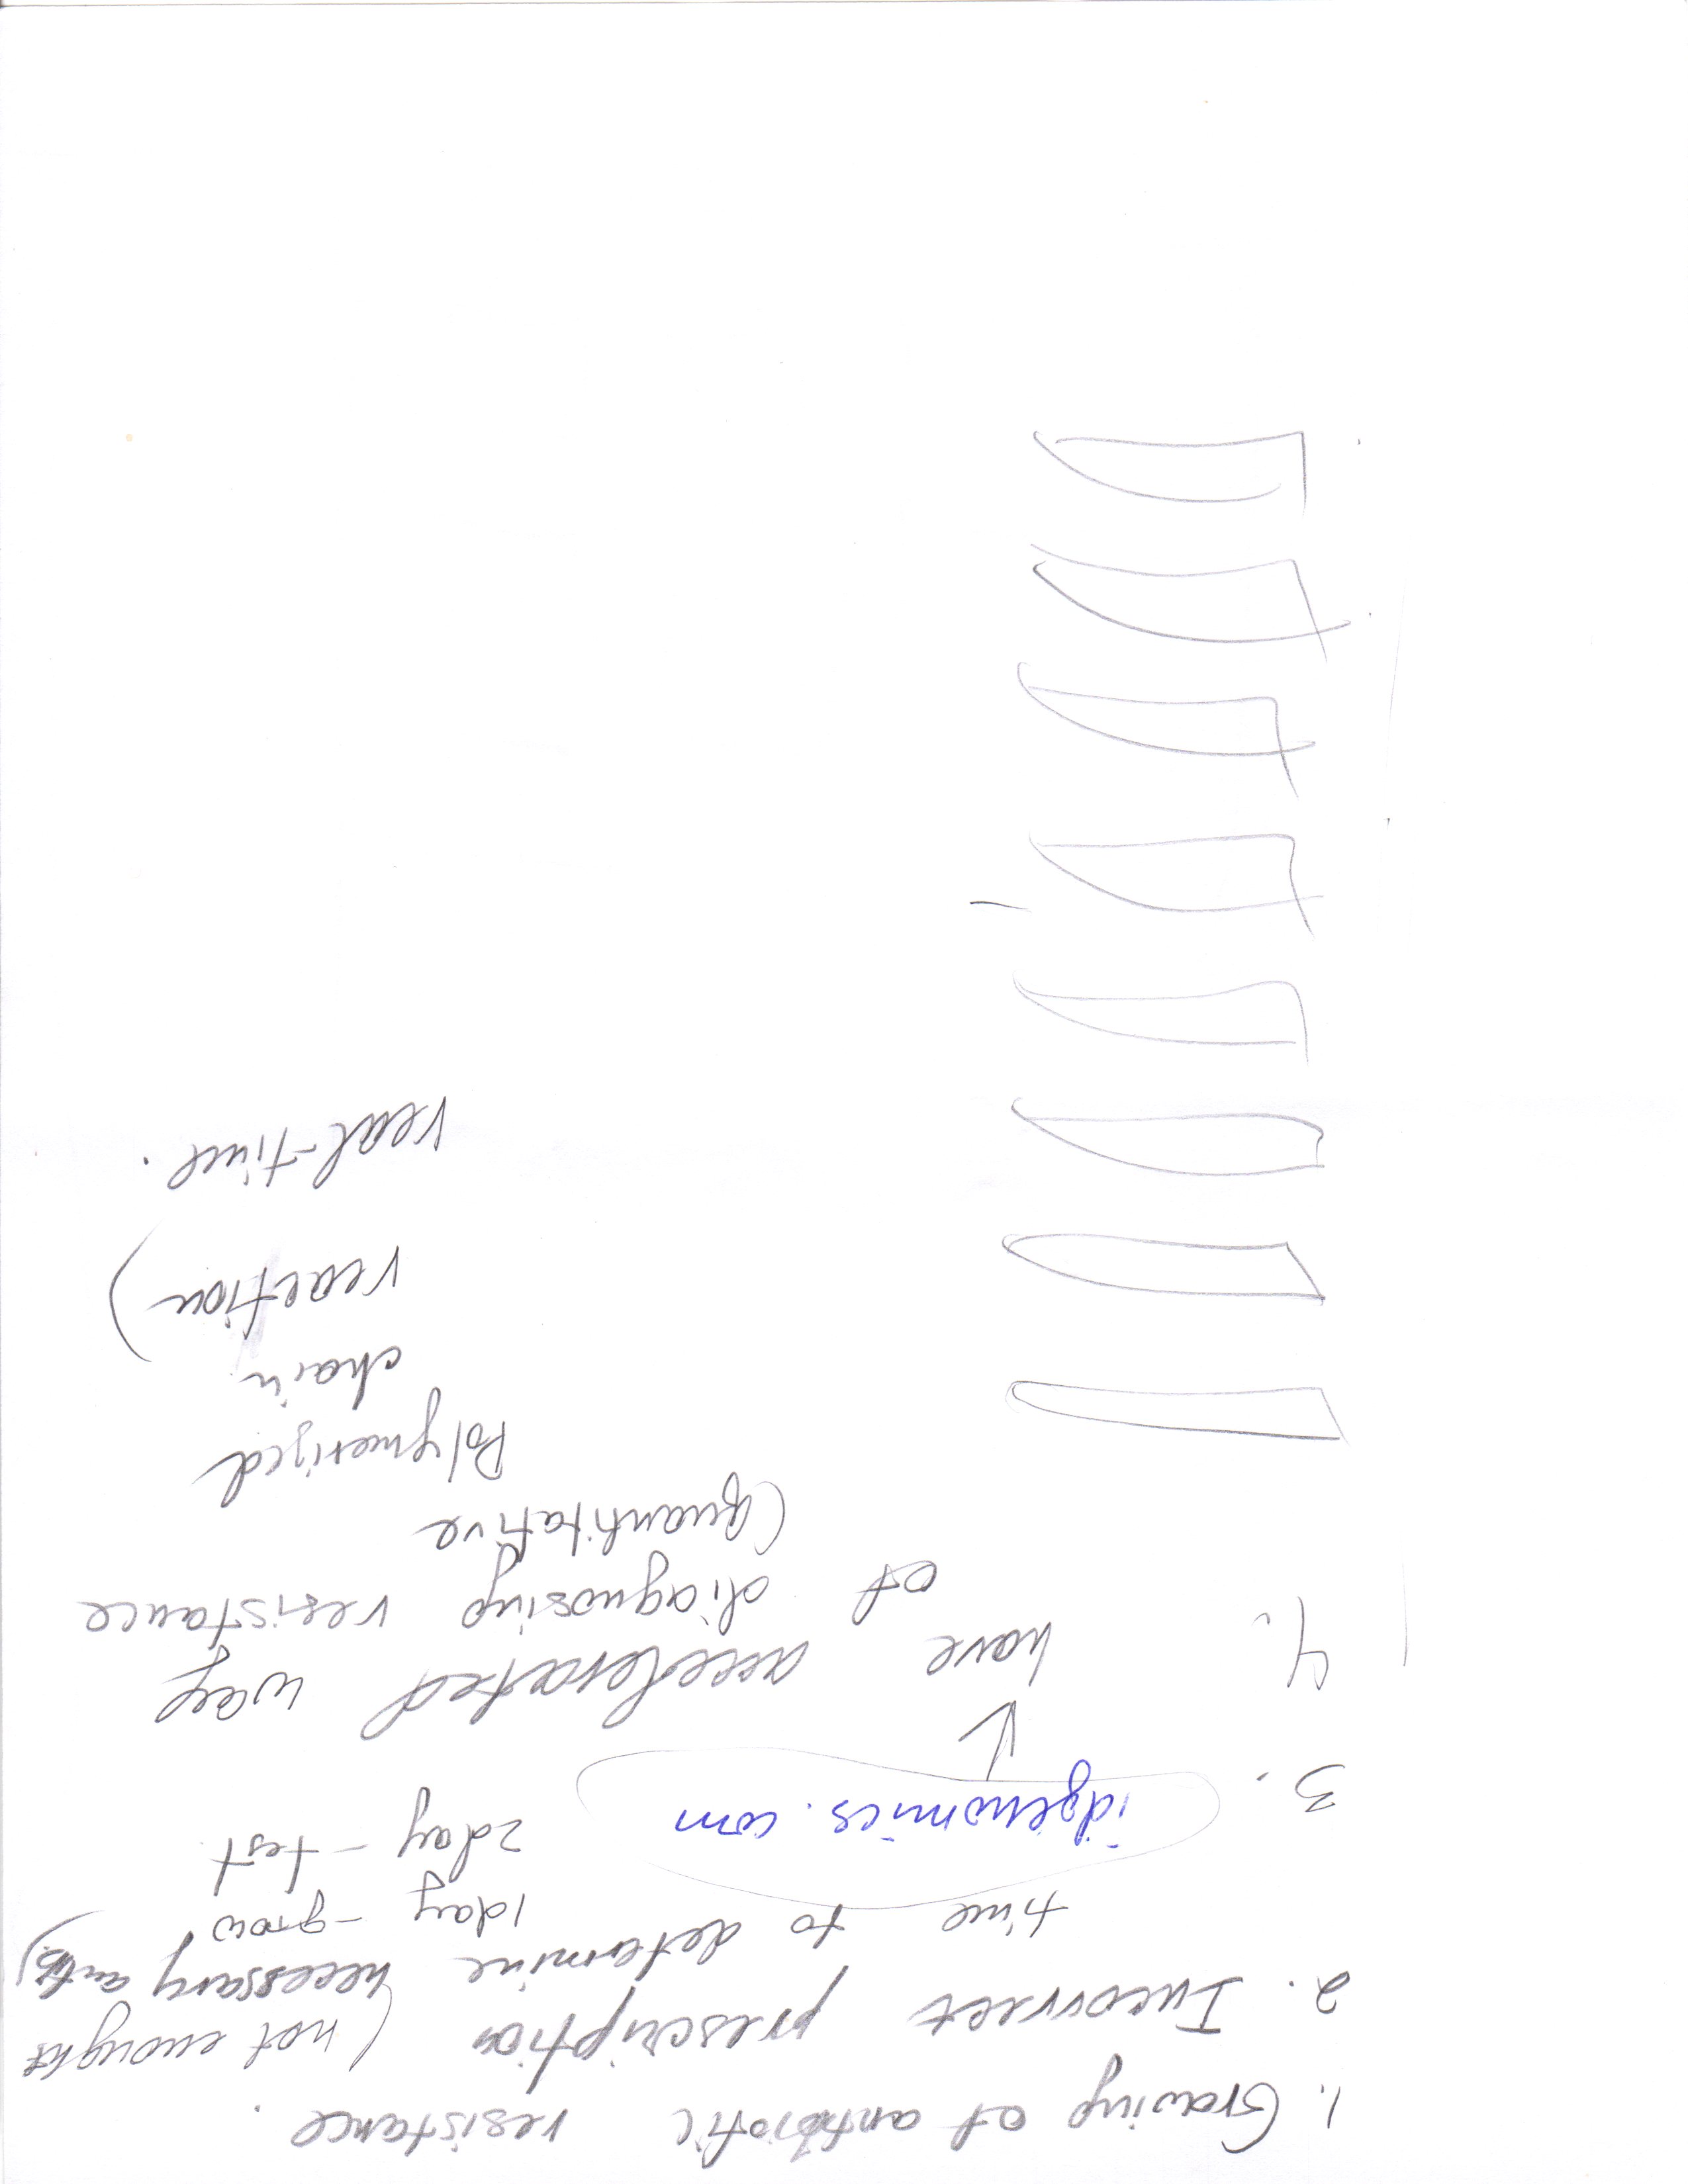 1. Growing of antibiotic resistance.
2. Incorrect prescription (not enought
time to determine necessary antb.)
1day - grow
2day - test
3. idgenomics.com
4. have accelerated way
of diagnosing resistance
(quantitative
Polymerized
chain
reaction)
real-time.